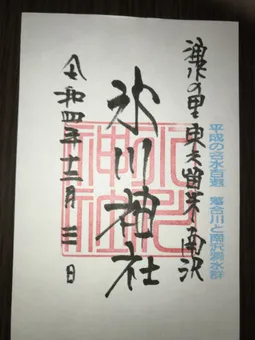 平成の名水百選 落合川と南沢湧水群
湧水の里 東久留米 南沢
氷川神社
令和四年十二月三日